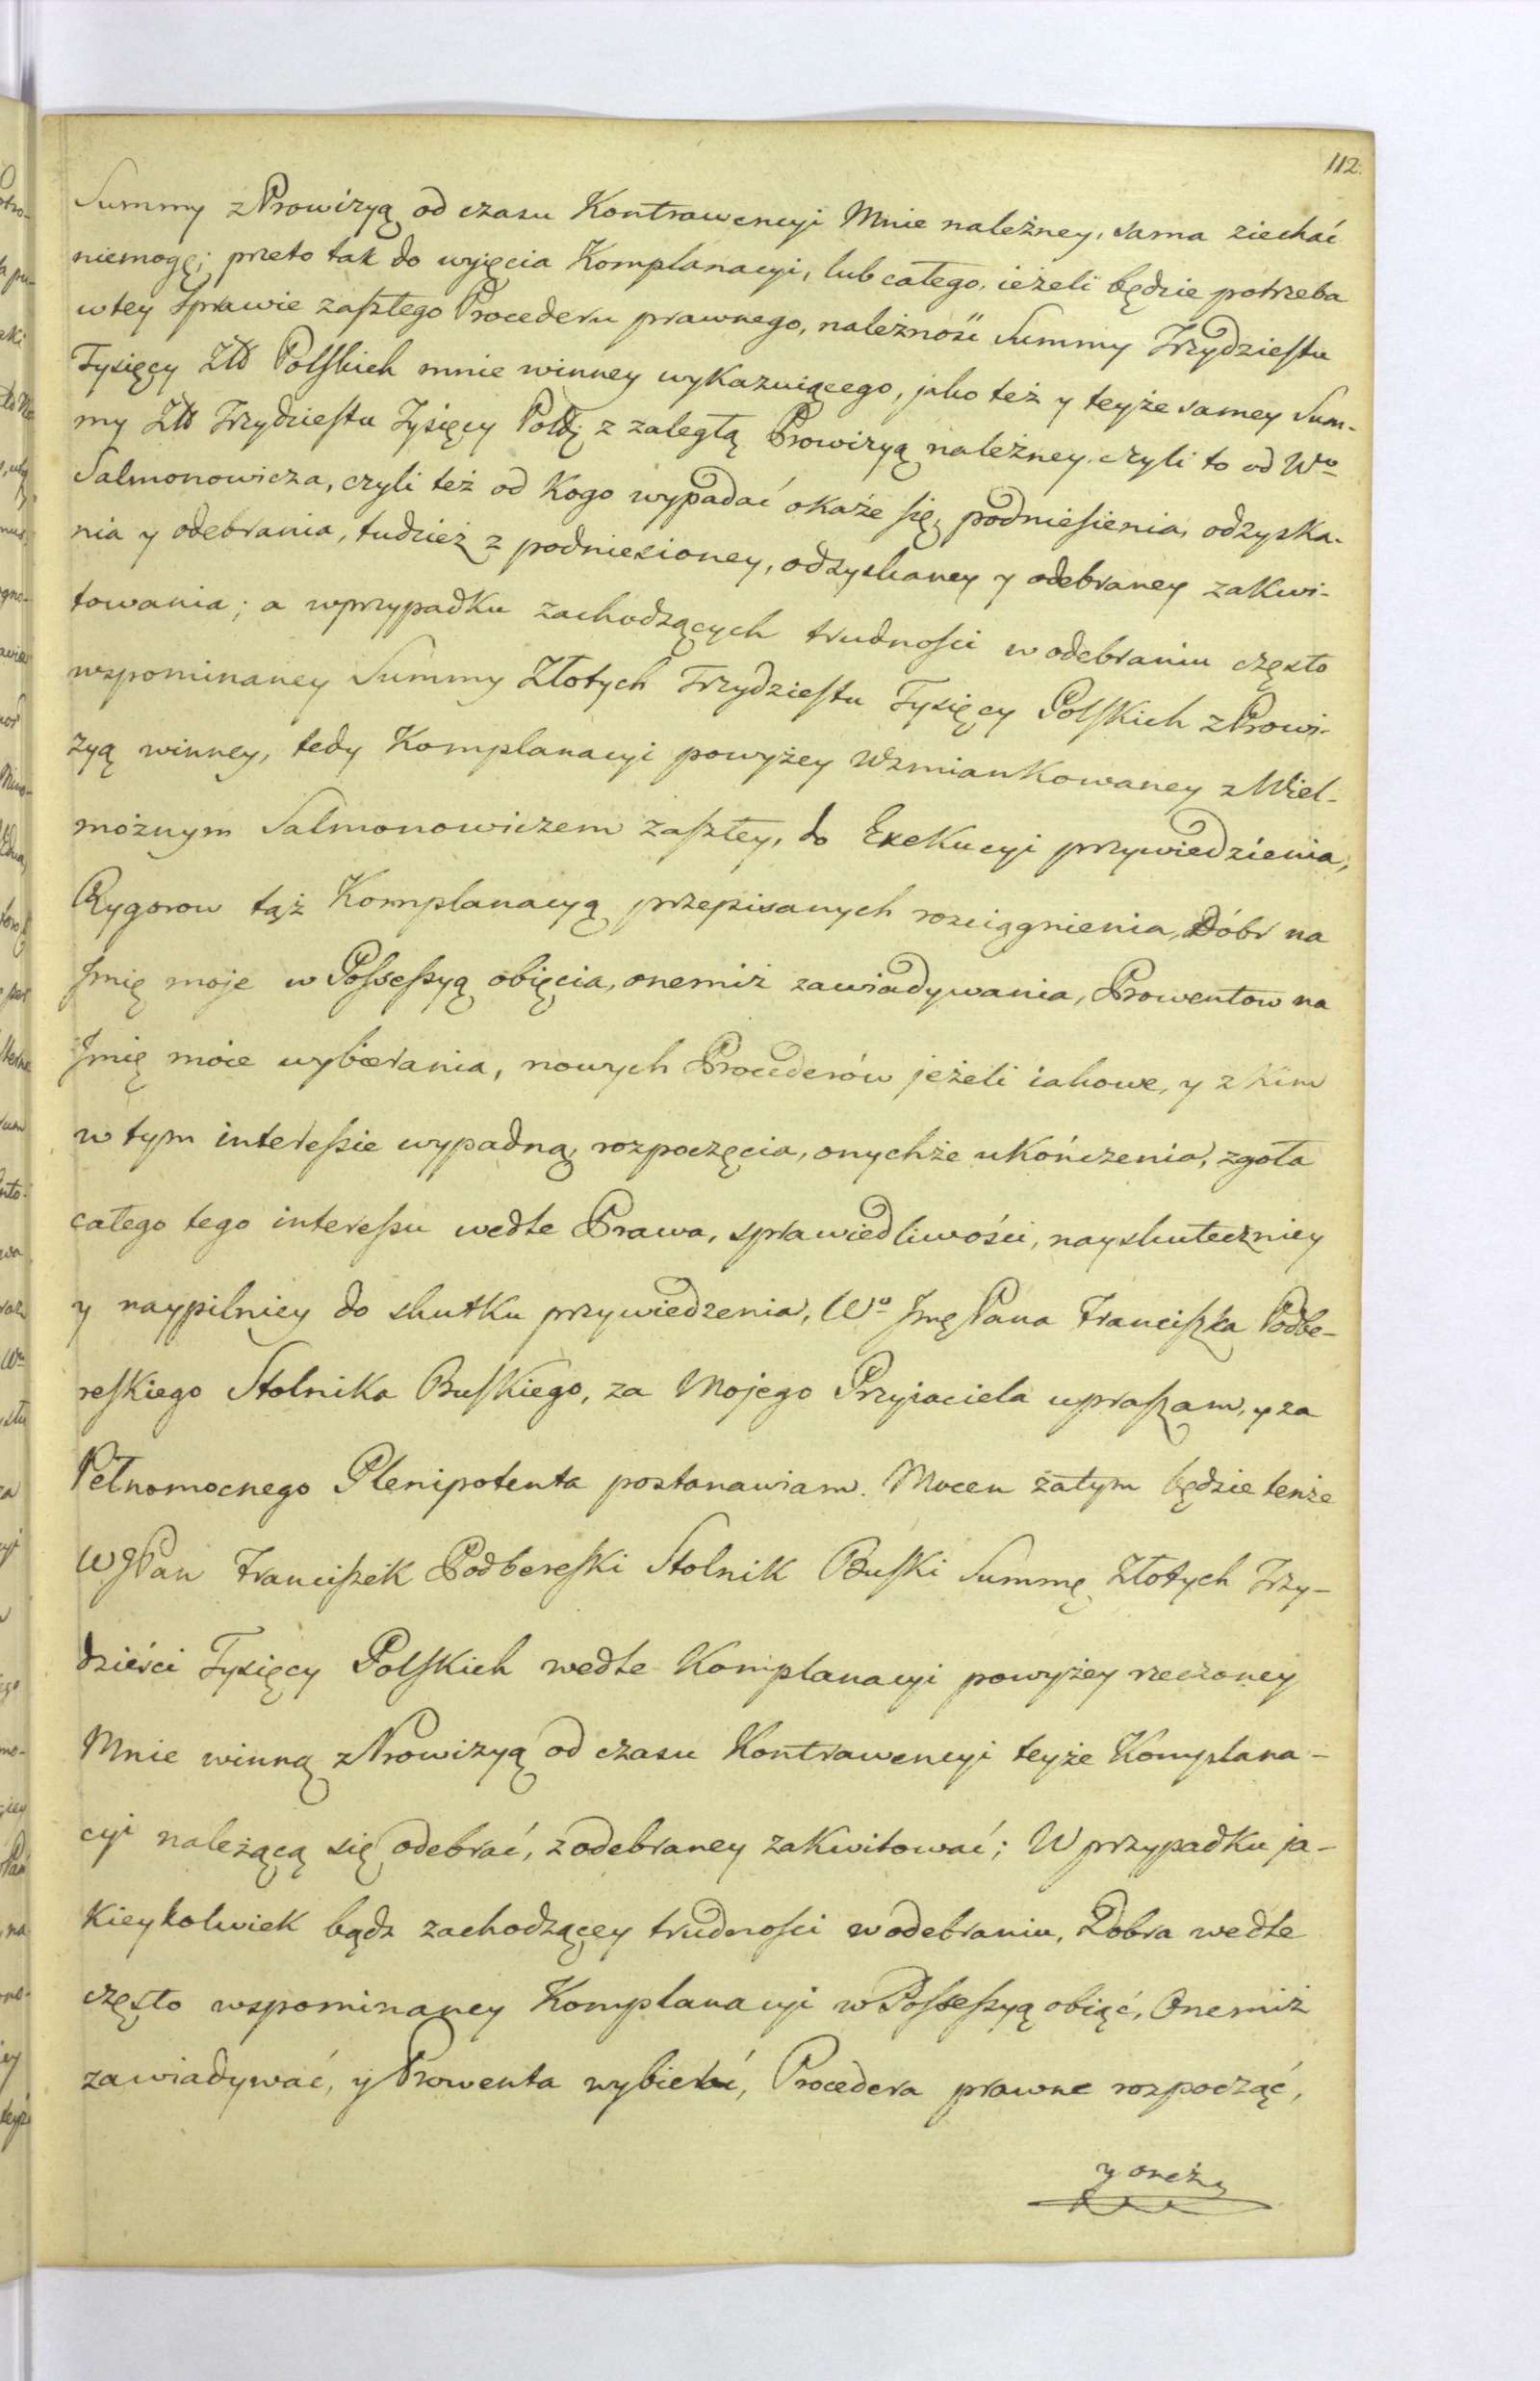 112.
Summy z Prowizyą od czasu Kontrawencyi Mnie należney, sama ziechać
niemogę; przeto tak do wyięcia Komplanacyi, lub całego, ieżeli będzie potrzeba
wtey Sprawie zaszłego Procederu prawnego, należność Summy Trzydziestu
Tysięcy Złł Polskich mnie winney wykazuiącego, jako też y teyże samey Sum-
my Złł Trzydziestu Tysięcy Polḍ z zaległą Prowizyą należney czyli to od Wo
Salmonowicza, czyli też od Kogo wypadać okaże się, podniesienia, odzyska-
nia y odebrania, tudzież z podniesioney, odzyskaney y odebraney zakwi-
towania; a wprzypadku zachodzących trudności w odebraniu często
wspominaney Summy Złotych Trzydziestu Tysięcy Polskich z Prowi-
zyą winney, tedy Komplanacyi powyżey Wzmiankowaney z Wiel-
możnym Salmonowiczem zaszłey, do Exekucyi przywiedzienia,
Rygorow tąż Komplanacyą przepisanych rozciągnienia, Dóbr na
Jmię moje w Possessyą obięcia, onemiż zawiadywania, Prowentow na
Jmię moie wybierania, nowych Procederów jeżeli iakowe, y z kim
w tym interessie wypadną, rozpoczęcia, onychże ukończenia, zgoła
całego tego interessu wedle Prawa, sprawiedliwości, nayskuteczniey
y naypilniey do skutku przywiedzenia, Wo Jmę Pana Franciszka Podbe-
reskiego Stolnika Buskiego, za Mojego Przyiaciela upraszam, y za
Pełnomocnego Plenipotenta postanawiam. Mocen zatym będzie tenże
WJPan Franciszek Podbereski Stolnik Buski Summę Złotych Trzy-
dzieści Tysięcy Polskich wedle Komplanacyi powyżey rzeczoney
Mnie winną z Prowizyą od czasu Kontrawencyi teyże Komplana-
cyi należącą się odebrać, z odebraney zakwitować; W przypadku ja-
kieykolwiek bądz zachodzącey trudności w odebraniu, Dobra wedle
często wspominaney Komplanacyi w Possessyą obiąć, Onemiż
zawiadywać, y Prowenta wybierać, Procedera prawne rozpocząć,
y oneż